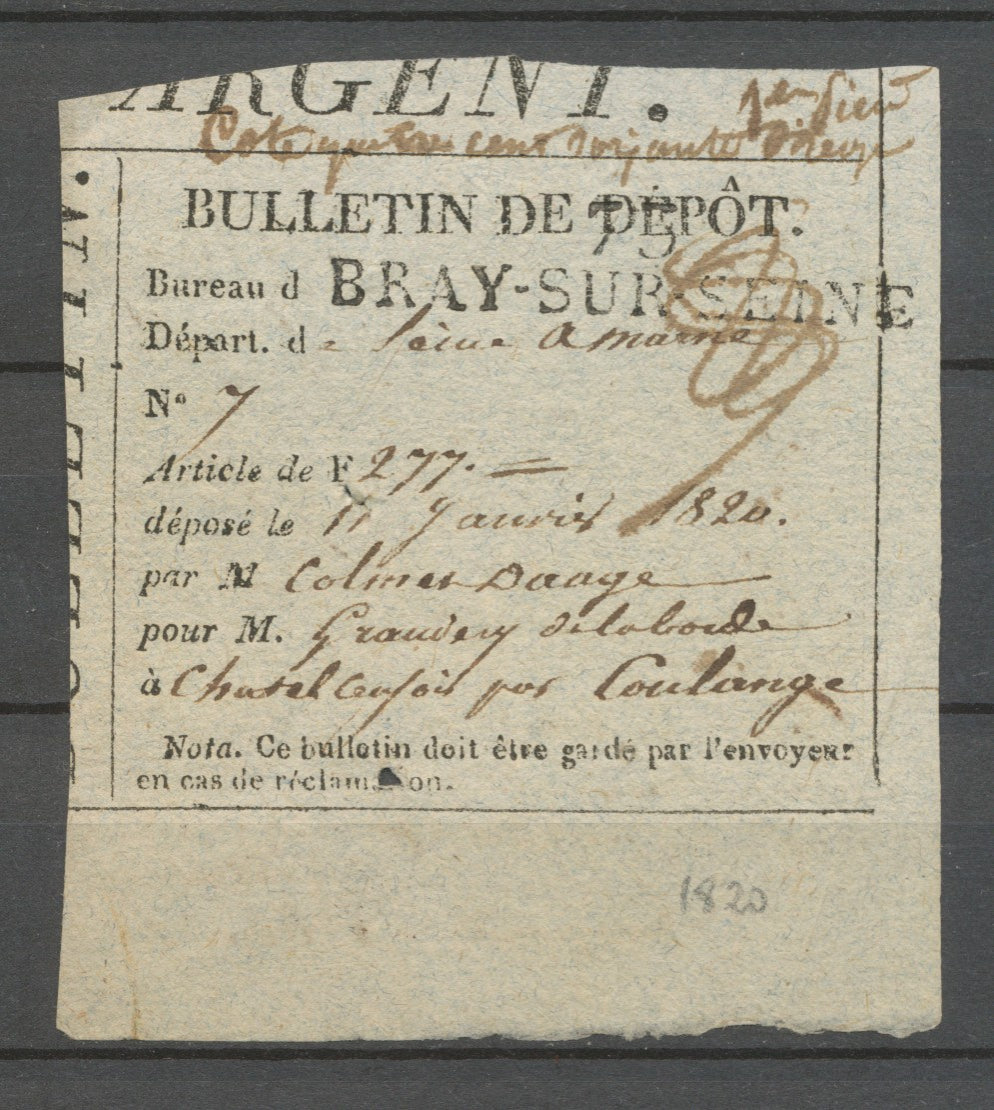 ARGENT.
Cote quatre cent soixante treize
BULLETIN.
BULLETIN DE DÉPÔT.
75
Bureau d BRAY-SUR-SEINE
Départ. de Seine & marne
N° 7
Article de F 277. =
déposé le 11 Janvier 1820.
par M Colmet Daage
pour M. delaborde
à Chatel Censoir par Coulange
Nota. Ce bulletin doit être gardé par l'envoyeur
en cas de réclamation.
1820